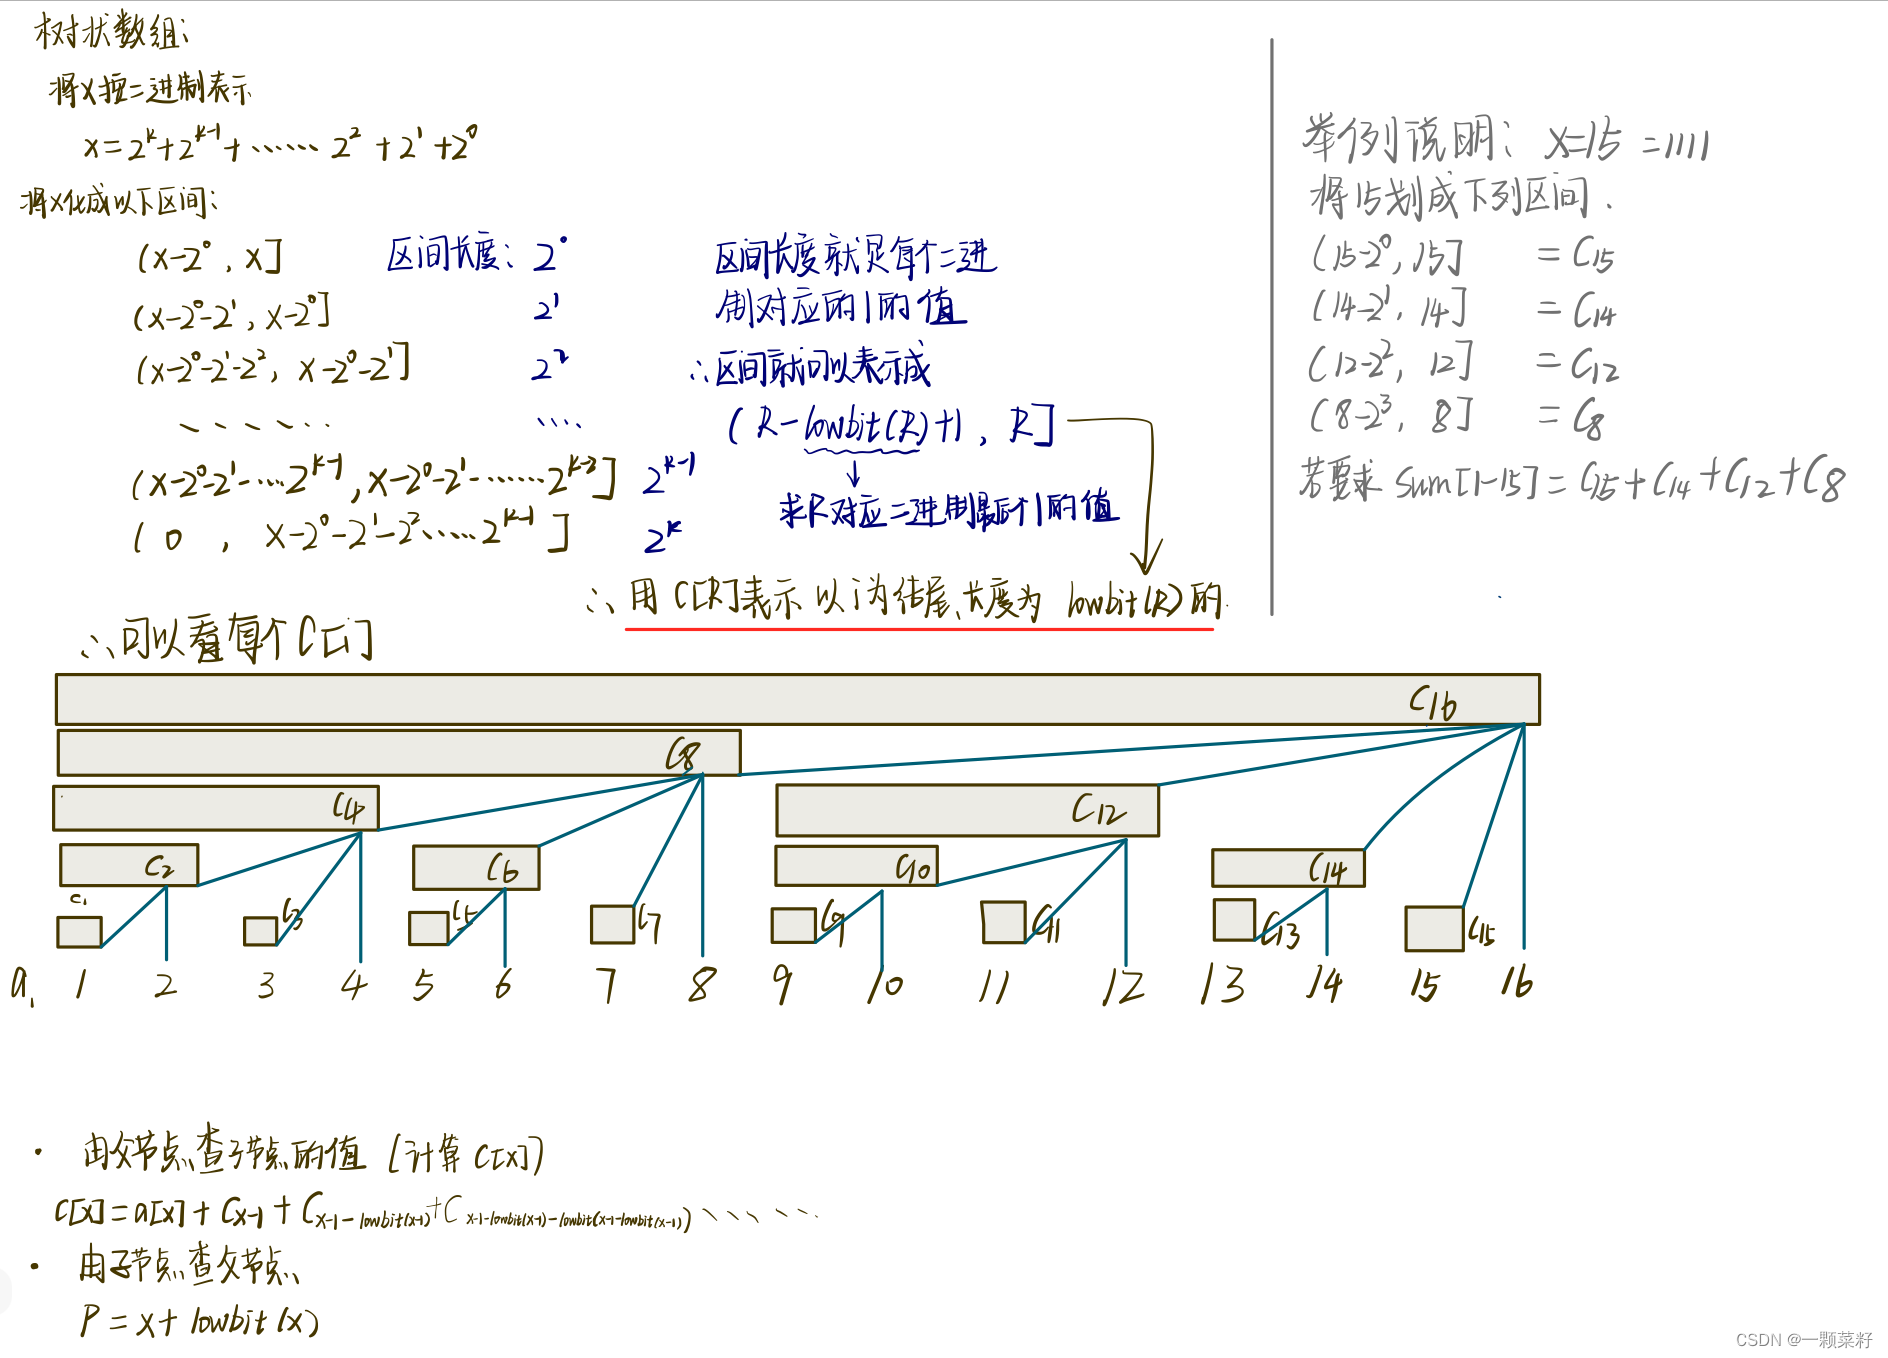 树状数组:
将x按二进制表示
x=2^k+2^{k-1}+…… 2^2+2^1+2^0
将x化成以下区间:
(x-2^0, x] 区间长度: 2^0
(x-2^0-2^1, x-2^0] 2^1
(x-2^0-2^1-2^2, x-2^0-2^1] 2^2
…… ….
(x-2^0-2^1-…2^{k-1}, x-2^0-2^1-……2^{k-2}] 2^{k-1}
(0, x-2^0-2^1-2^2……2^{k-1}] 2^k
区间长度就是每个二进
制对应的1的值
∴区间就可以表示成
(R-lowbit(R)+1, R]
求R对应二进制最后个1的值
∴用C[R]表示以i为结尾、长度为lowbit(R)的
举例说明: x=15=1111
将15划成下列区间.
(15-2^0, 15] =C15
(14-2^1, 14] =C14
(12-2^2, 12] =C12
(8-2^3, 8] =C8
若要求 Sum[1-15]=C15+C14+C12+C8
∴可以看每个C[i]
C16
C8
C4 C12
C2 C6 C10 C14
C1 C3 C5 C7 C9 C11 C13 C15
a. 1 2 3 4 5 6 7 8 9 10 11 12 13 14 15 16
· 由父节点查子节点的值 (计算C[x])
C[x]=a[x]+C_{x-1}+C_{x-1-lowbit(x-1)}+C_{x-1-lowbit(x-1)-lowbit(x-1-lowbit(x-1))}……
· 由子节点查父节点
P=x+lowbit(x)
CSDN @一颗菜籽